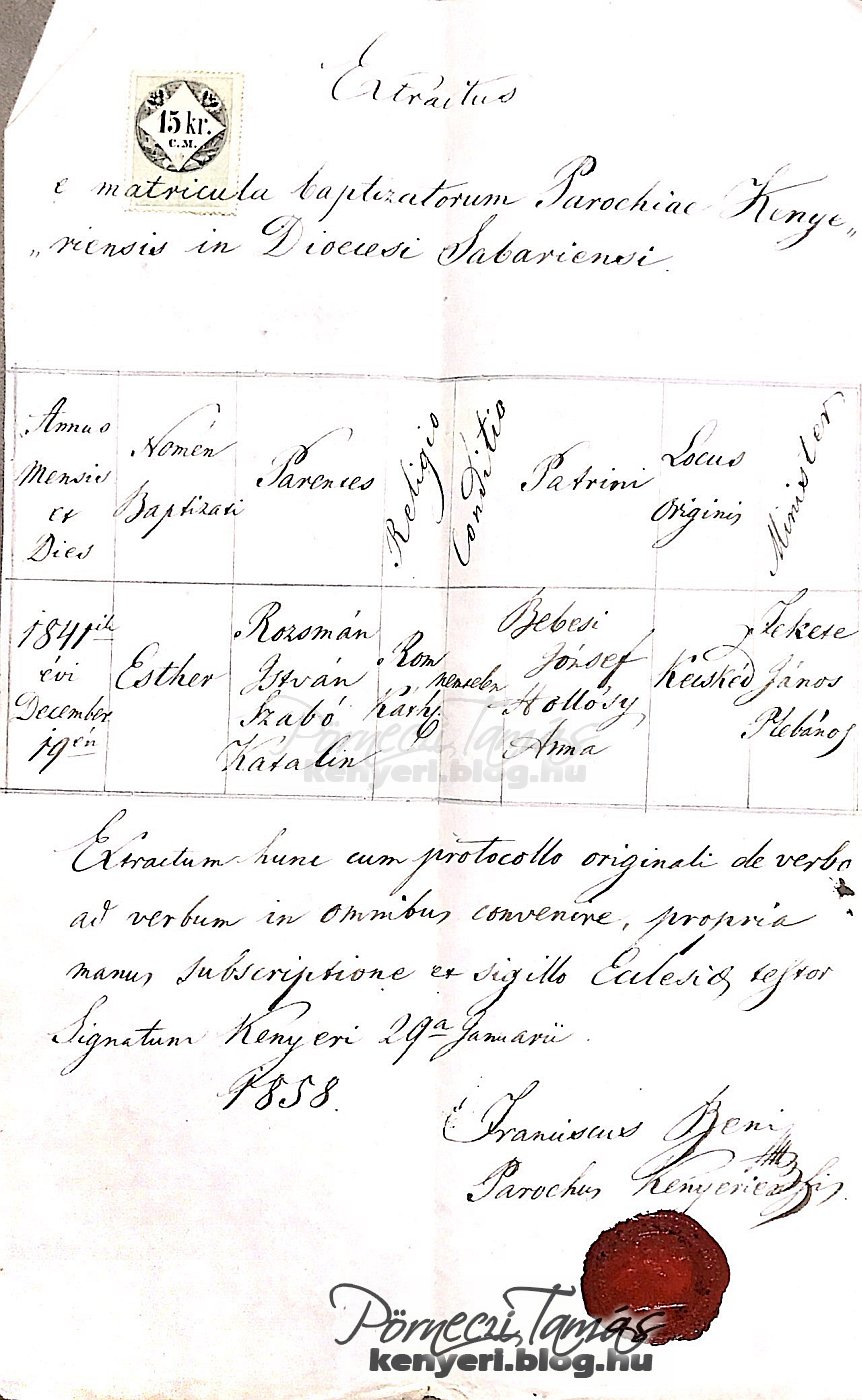 Extractus
15 kr.
C.M.
e matricula baptizatorum Parochiae Kenye„
„riensis in Dioecesi Sabariensi.
Annus
Mensis
et
Dies
Nomen
Baptizati
Parentes
Religio
Conditio
Patrini
Locus
Originis
Minister
1841ik
évi
December
19én
Esther
Rozsmán
István
Szabó
Katalin
Rom
Kath.
nemtelen
Bebesi
József
Hollósy
Anna
Kecskéd
Fekete
János
Plébános
Pörneczi Tamás
kenyeri.blog.hu
Extractum hunc cum protocollo originali de verbo
ad verbum in omnibus convenire, propria
manus subscriptione et sigillo Ecclesiae testor
Signatum Kenyeri 29a Januarii.
1858.
Franciscus Beni
Parochus Kenyeriensis.
Pörneczi Tamás
kenyeri.blog.hu